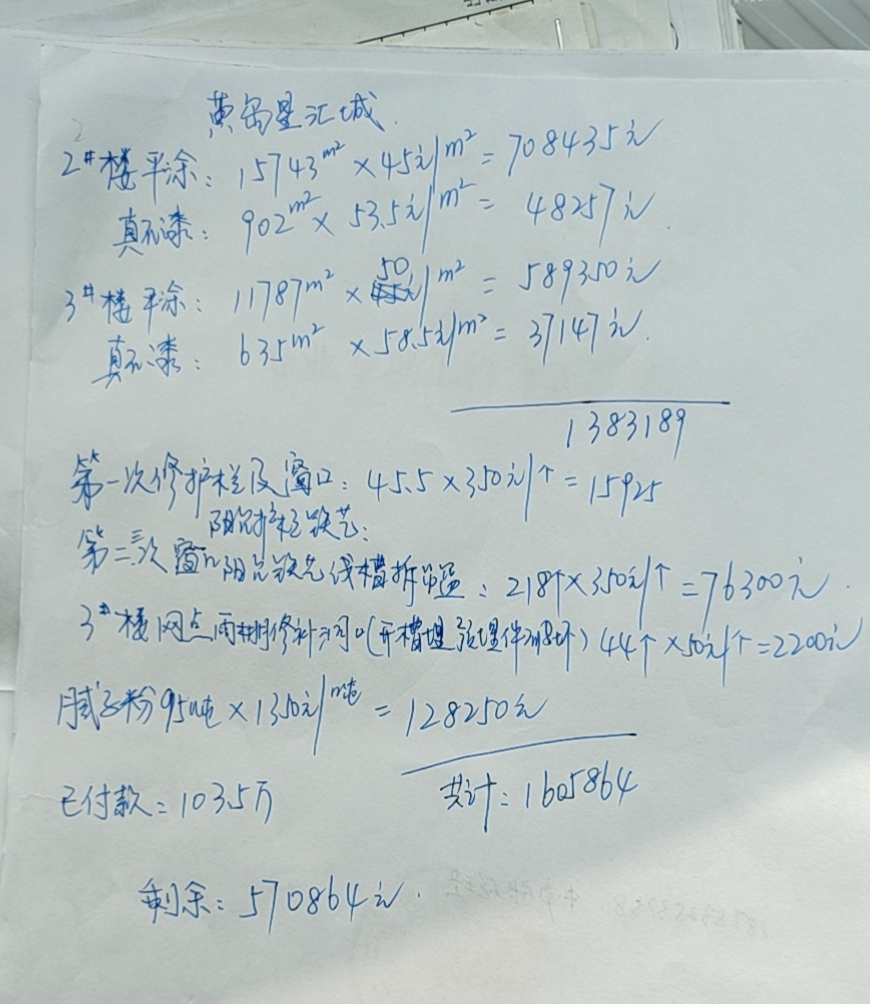 黄岛星汇城.
2#楼平涂: 15743m² × 45元/m² = 708435元
真石漆: 902m² × 53.5元/m² = 48257元.
3#楼平涂: 11787m² × 50元/m² = 589350元
真石漆: 635m² × 58.5元/m² = 37147元.
1383189
第一次修护栏及窗口: 45.5×350元/个=15925
阳台护栏铁艺:
第二三次窗口阳台铁艺线槽拆吊篮: 218个×350元/个=76300元.
3#楼网点雨棚修补洞口(开槽埋 预埋件破坏) 44个×50元/个=2200元
腻子粉95吨×1350元/吨 = 128250元
共计: 1605864
已付款=103.5万
剩余: 570864元.